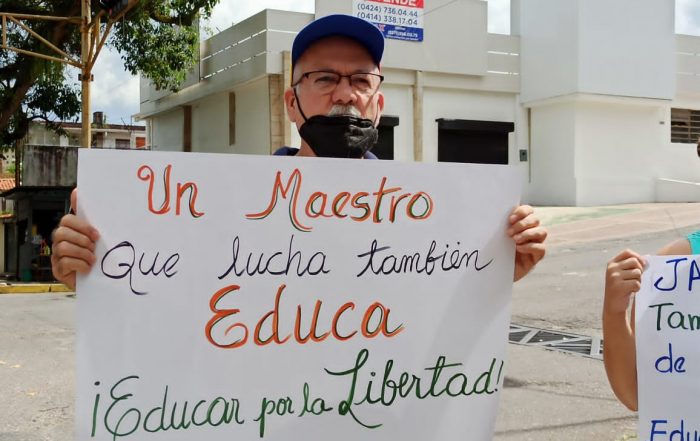 (0424) 736.04.44
(0414) 338.17.04
Un Maestro
Que lucha también
Educa
¡Educar por la Libertad!
JA
Tam
de
Edu